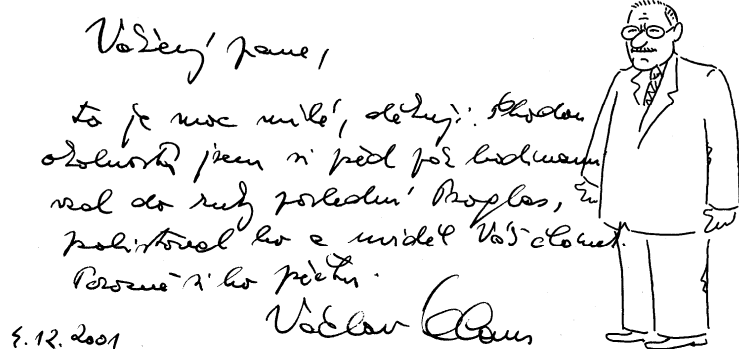 Vážený pane,
to je moc milé, děkuji. Shodou
okolností jsem si před pár hodinami
vzal do ruky poslední Proglas,
zalistoval ho a viděl Váš článek.
Pozorně si ho přečtu.
Václav Klaus
5.12.2001